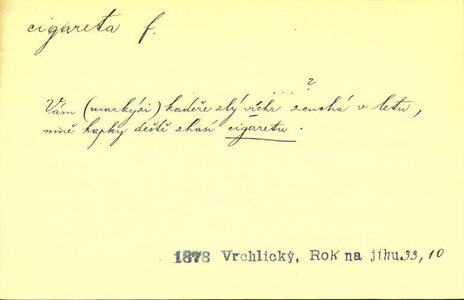 cigareta f.
. . . ?
Vám (markýzi) kadeře zlý vichr scuchá v letu,
mně kapky deště zhasí cigaretu.
1878 Vrchlický, Rok na jihu. 33, 10